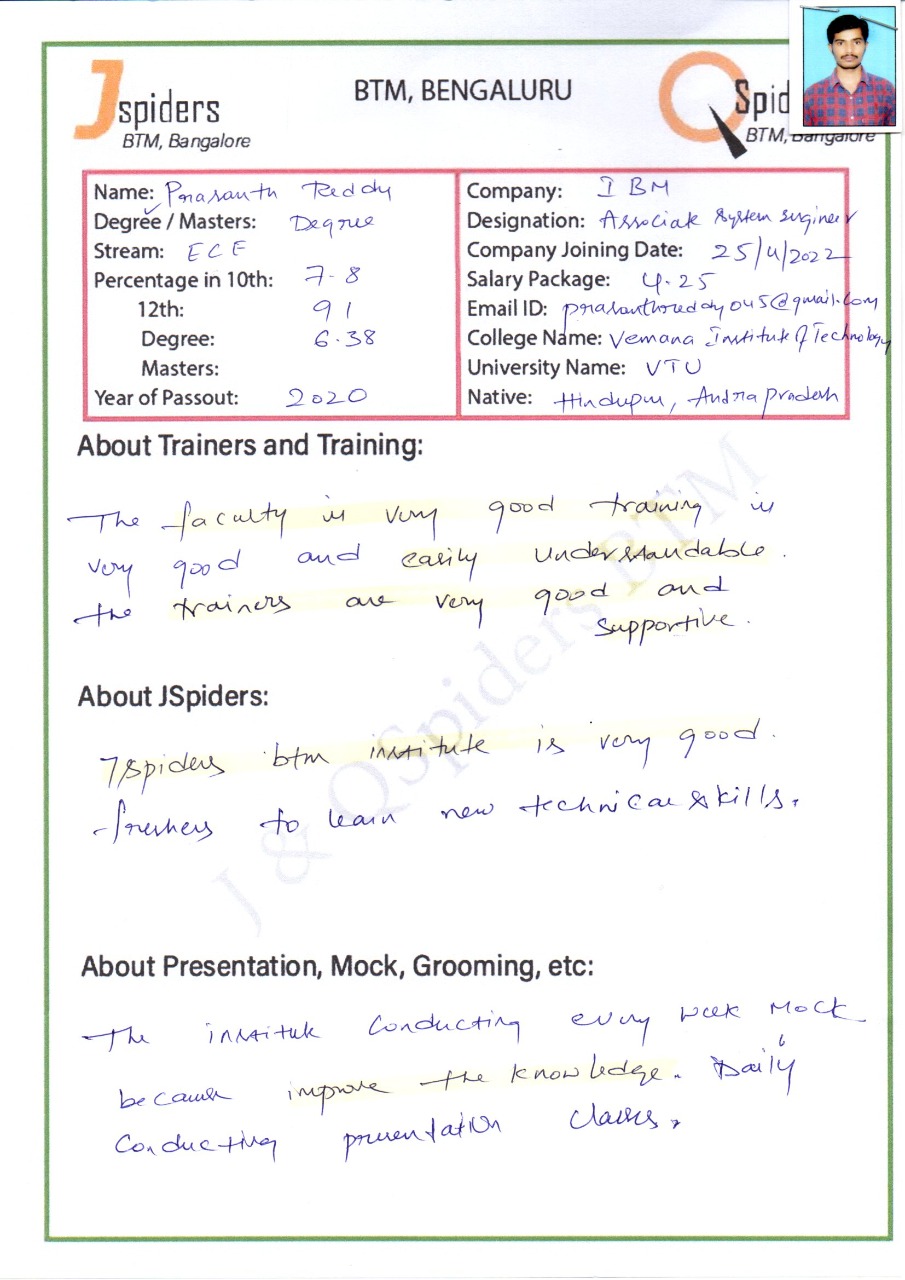 Jspiders
BTM, Bangalore
BTM, BENGALURU
QSpid
BTM, Bangalore
Name: Prasanth Reddy
Degree / Masters: Degree
Stream: ECE
Percentage in 10th: 7.8
12th: 91
Degree: 6.38
Masters:
Year of Passout: 2020
Company: IBM
Designation: Associate System Engineer
Company Joining Date: 25/4/2022
Salary Package: 4.25
Email ID: prasanthreddy045@gmail.com
College Name: Vemana Institute of Technology
University Name: VTU
Native: Hindupur, Andra pradesh
About Trainers and Training:
The faculty is very good training is
very good and easily understandable.
the trainers are very good and
supportive.
About JSpiders:
Jspiders btm institute is very good.
freshers to learn new technical skills.
About Presentation, Mock, Grooming, etc:
The institute conducting every week Mock
because improve the knowledge. Daily
conducting presentation classes.
J & QSpiders BTM